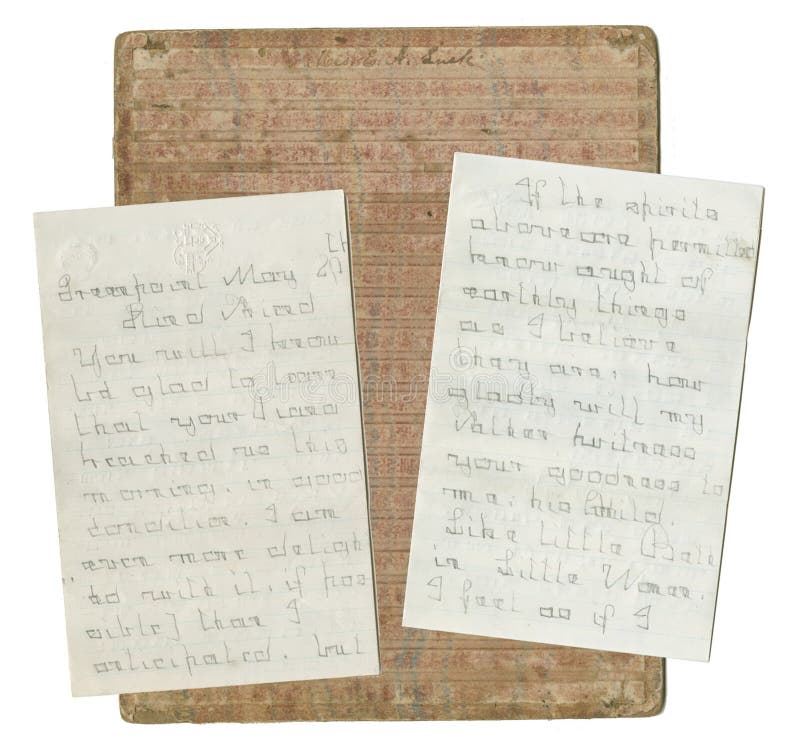 Miss E. A. Lusk
th
Greenpoint May
Kind Friend
You will I know
be glad to learn
that your Piano
reached us this
morning, in good
condition. I am
even more deligh
ted with it, if pos
sible] than I
anticipated, but
If the spirits
above are permitted
know aught of
earthly things
as I believe
they are; how
gladly will my
Father witness
your goodness to
me, his Child.
Like little Beth
in Little Women.
I feel as if I
dreamstime